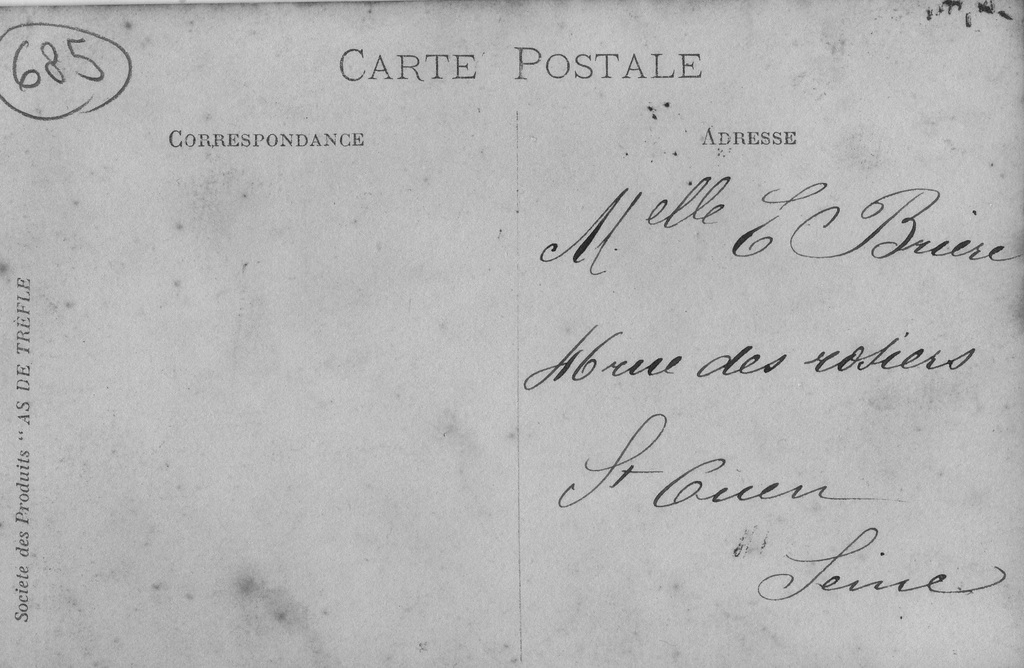 685
CARTE POSTALE
CORRESPONDANCE
ADRESSE
Melle E Briere
46 rue des rosiers
St Ouen
Seine
Société des Produits " AS DE TRÈFLE